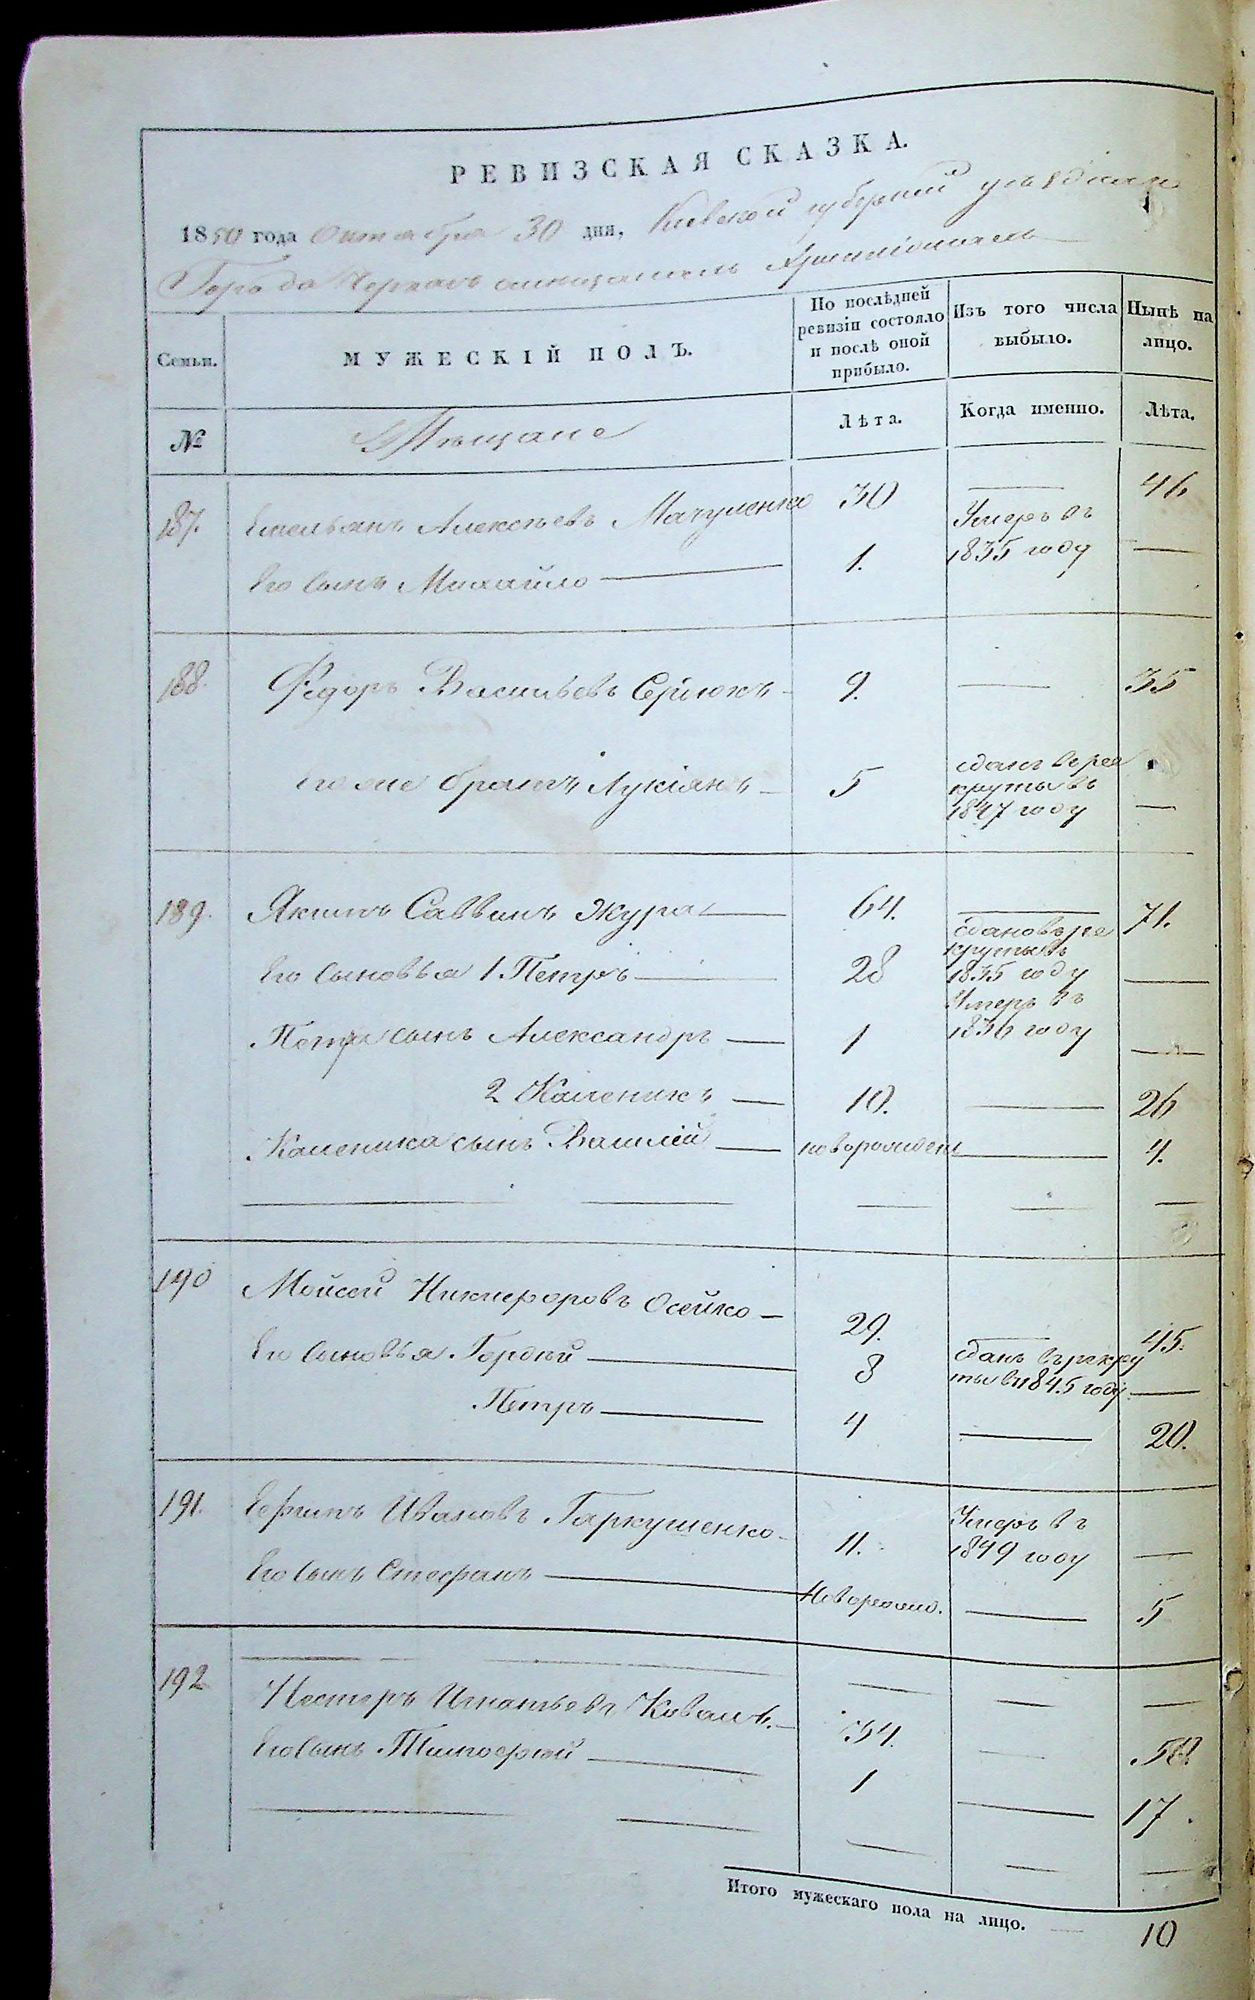 РЕВИЗСКАЯ СКАЗКА.
1850 года Октября 30 дня, Киевской губернии уѣзднаго
Города Черкасъ
Семьи.
МУЖЕСКІЙ ПОЛЪ.
По послѣдней ревизіи состояло и послѣ оной прибыло.
Изъ того числа выбыло.
Нынѣ на лицо.
№
Мѣщане
Лѣта.
Когда именно.
Лѣта.
187. Емельянъ Алексѣевъ Мачуленко 30 — 46
Его сынъ Михайло — 1. Умеръ въ 1835 году —
188. Федоръ Васильевъ Сердюкъ 9. — 35
его же братъ Лукіянъ — 5 сданъ в рекруты въ 1847 году —
189. Якимъ Саввинъ Жура — 64. — 71.
Его сыновья 1. Петръ — 28 сданъ въ рекруты въ 1835 году —
Петра сынъ Александръ — 1 Умеръ въ 1836 году —
2 Каленикъ — 10. — 26
Каленика сынъ Василій — новорожден — 4.
190 Мойсей Никифоровъ Осейко — 29. — 45.
Его сыновья Гордѣй — 8 сданъ въ рекруты в 1845 году —
Петръ — 4 — 20.
191. Ефимъ Ивановъ Гаркушенко — 11. Умеръ въ 1849 году —
Его сынъ Стефанъ — Новорожд. — 5
192 Нестеръ Игнатьевъ Коваль. — 34. — 50.
Его сынъ Тимофѣй — 1 — 17.
Итого мужескаго пола на лицо. — 10